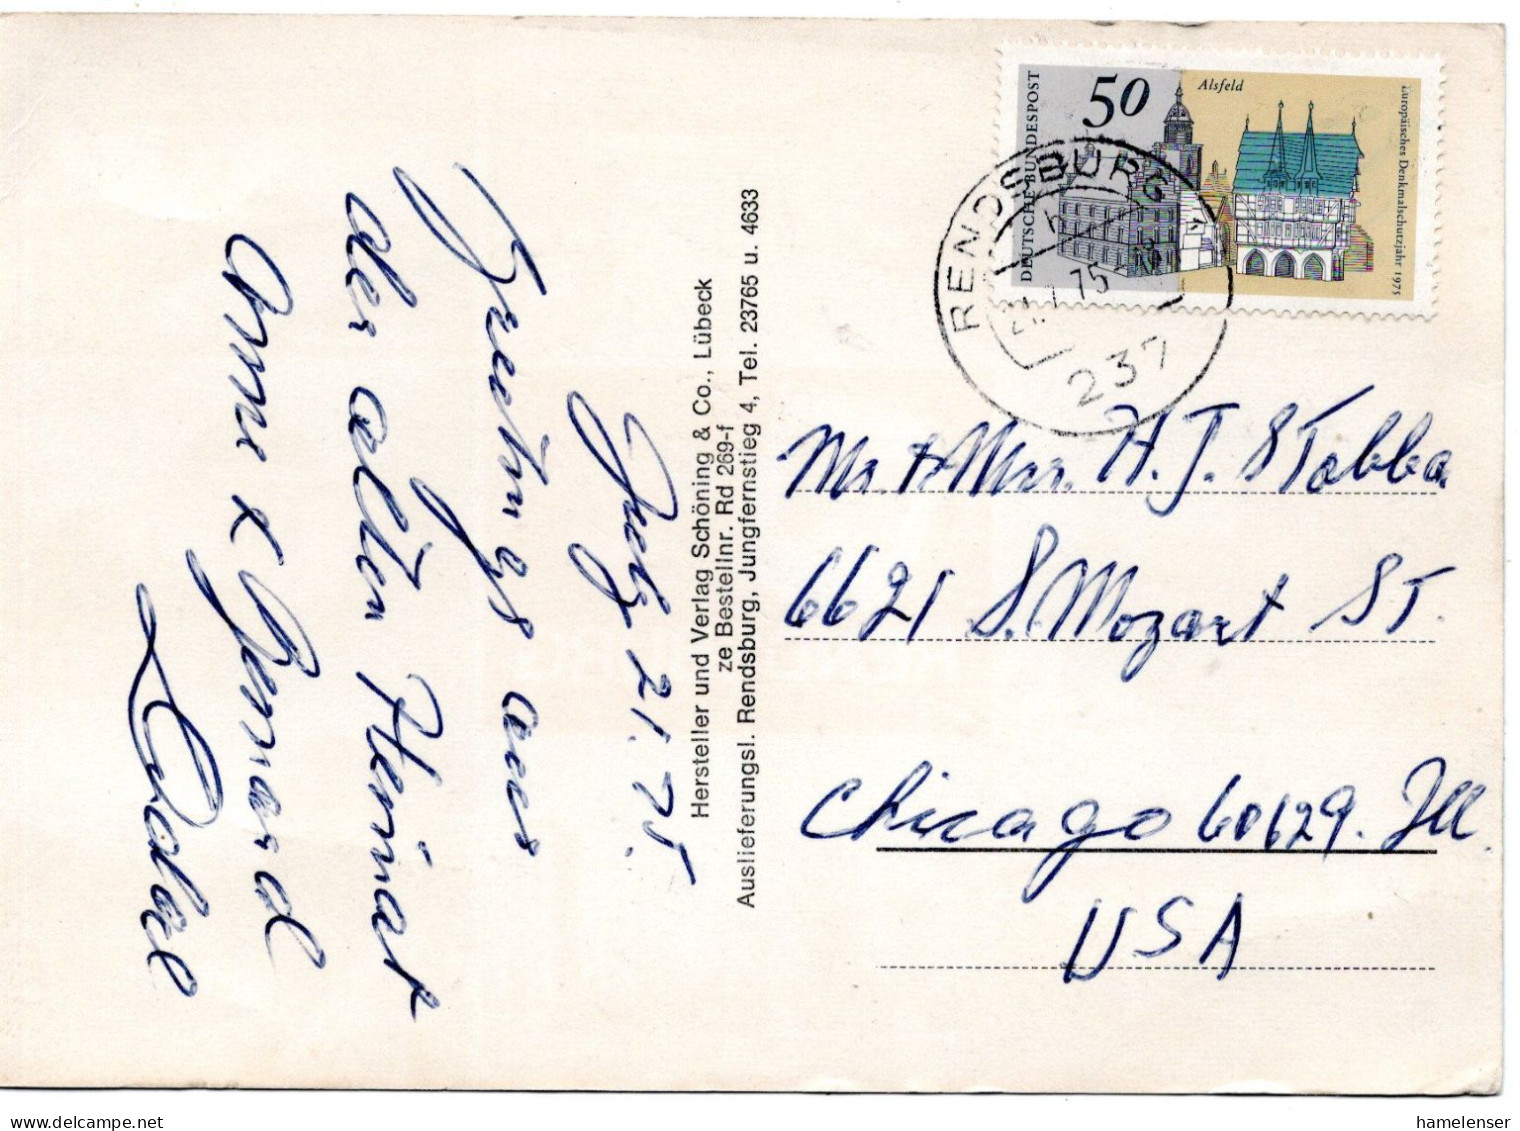 July 21. 75.
Greetings aus
der alten Heimat
Anne & Gerard
Hersteller und Verlag Schöning & Co., Lübeck
ze Bestellnr. Rd 269-f
Auslieferungsl. Rendsburg, Jungfernstieg 4, Tel. 23765 u. 4633
DEUTSCHE BUNDESPOST
50
Alsfeld
Europäisches Denkmalschutzjahr 1975
RENDSBURG
21.7.75
237
Mr. + Mrs. H. J. Stabba
6621 S. Mozart St.
Chicago 60629. Ill.
USA
delcampe.net
hamelenser